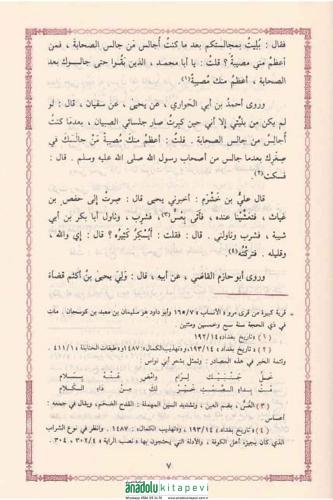 فقال : بُليتُ بمجالستكم بعد ما كنتُ أُجالس مَن جالس الصحابة ، فمن
أعظمُ مني مصيبةً ؟ قلتُ : يا أبا محمد ، الذين بقُوا حتى جالسوك بعد
الصحابة ، أعظمُ منكَ مُصيبةً (١).
وروى أحمدُ بن أبي الحَواري ، عن يحيى ، عن سفيان ، قال : لو
لم يكن مِن بليَّتي إلا أني حين كبِرتُ صار جلسائي الصبيان ، بعدما كنتُ
أُجالِسُ مَن جالس الصحابة . قلتُ : أعظمُ منكَ مُصيبةً مَنْ جالَسكَ في
صِغرك بعدما جالس من أصحاب رسول الله صلى الله عليه وسلم . قال :
فسكت (٢).
قال عليُّ بن خَشْرَم : أخبرني يحيى قال : صِرتُ إلى حفص بن
غياث ، فتعشَّينا عنده ، فأُتى بعُسٍّ (٣)، فشرب ، وناول أبا بكر بن أبي
شيبة ، فشرب وناولني . قال : فقلت : أيُسكِرُ كثيرُه ؟ قال : إي والله ،
وقليله . فتركتُه (٤).
وروى أبو حازم القاضي ، عن أبيه ، قال : وَلِيَ يحيى بنُ أكثم قضاءَ
= قرية كبيرة من قرى مرو « الأنساب » ١٦٥/٧ وأبو داود هو سليمان بن معبد بن كوسجان . مات
في ذي الحجة سنة سبع وخمسين ومئتين .
(١) « تاريخ بغداد » ١٩٢/١٤
(٢) « تاريخ بغداد » ١٩٣/١٤ ، و« تهذيب الكمال » : ١٤٨٧ و« طبقات الحنابلة » ٤١١/١ ،
وتتمة الخبر في هذه المصادر : وتمثل بشعر أبي نواس
خَلِّ جَنْبَيْكَ لِرَامِ وامْضِ عَنْهُ بِسَلَامِ
مُتْ بِدَاءِ الصَّمْتِ خَيْرٌ لَكَ مِنْ دَاءِ الكَلَامِ
(٣) العُسُّ ، بضم العين ، وتشديد السين المهملة : القدح الضخم ، ويقال في جمعه :
أعساس
(٤) « تاريخ بغداد » ١٩٣/١٤ ، و« تهذيب الكمال » : ١٤٨٧ . وانظر في نوع الشراب
الذي كان يجيزه أهل الكوفة ، والأدلة التي يحتجون بها « نصب الراية » ٣٠٢/٤ ، ٣٠٤ .
٧
anadolu kitapevi